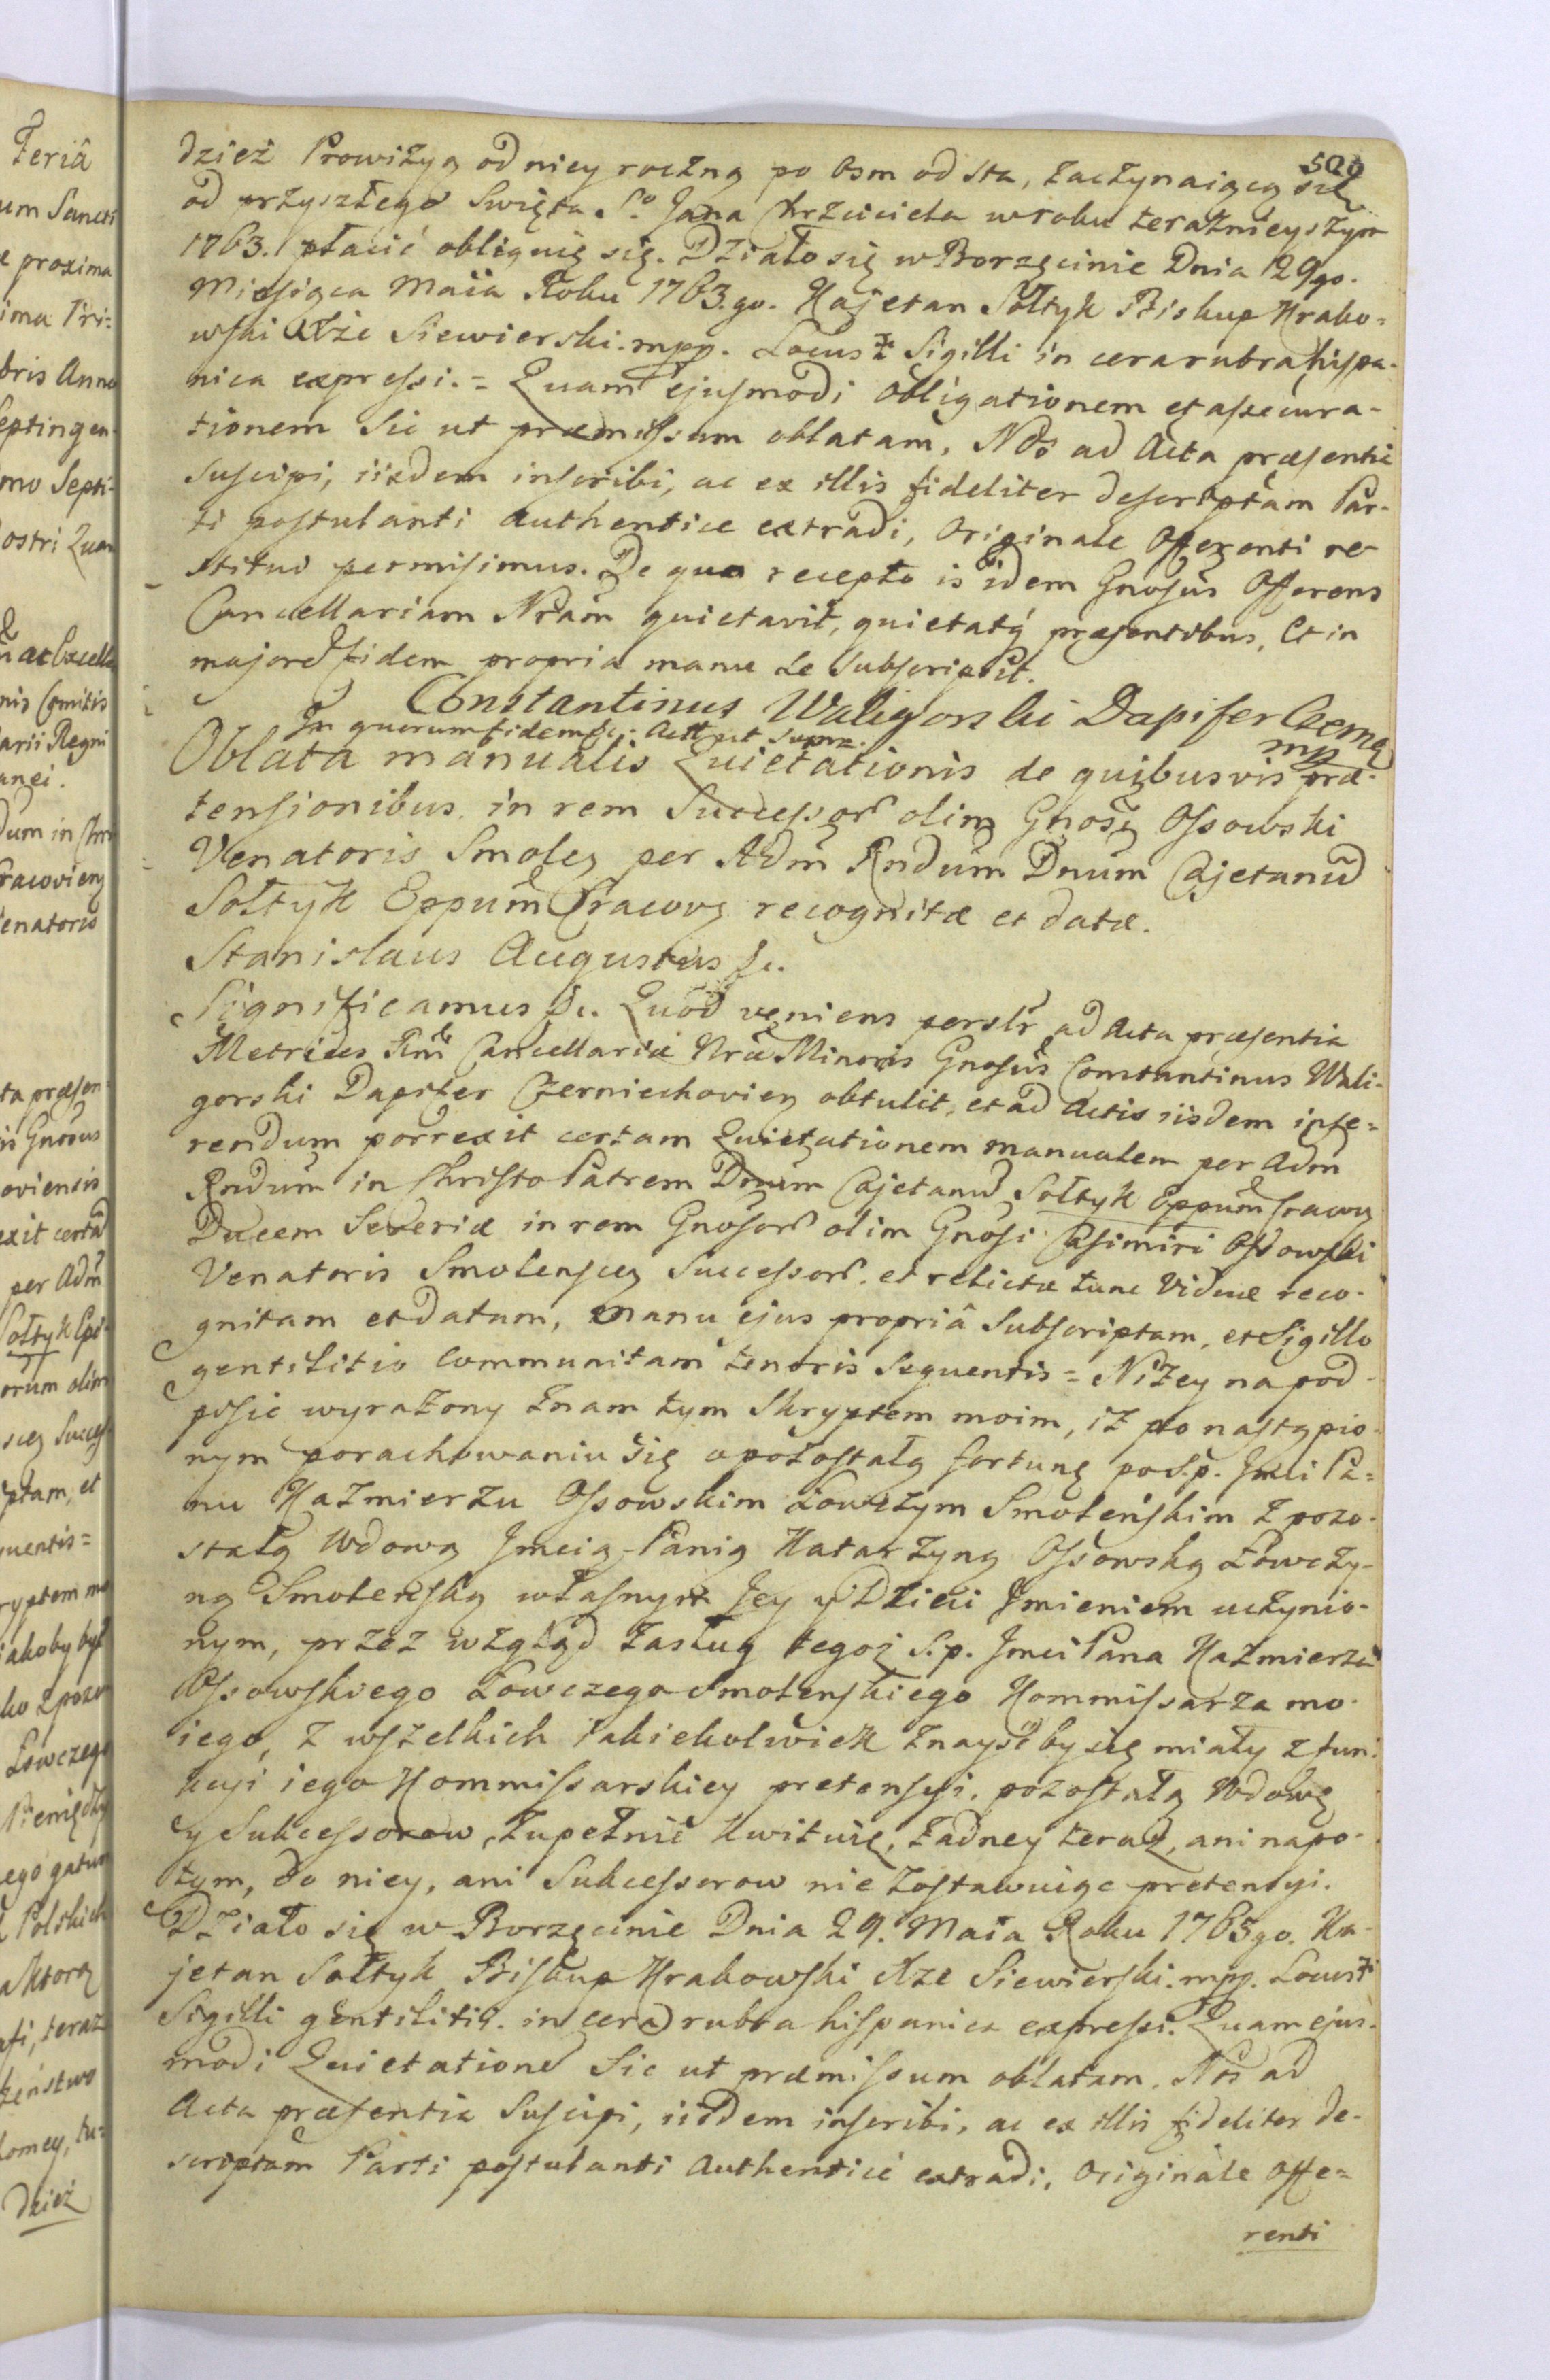 500
dzież Prowizyą od niey roczną po osm od sta, zaczynaiącą się
od przyszłego Swięta So. Jana Chrzciciela w roku teraznieyszym
1763. płacić obliguię się. Działo się w Borzęcinie Dnia 29go.
Miesiąca Maia Roku 1763.go. Kajetan Sołtyk Biskup Krako=
wski Xże Siewierski. mpp. Locus Sigilli in cera rubra hispa-
nica expressi. = Quam ejusmodi obligationem et assecura-
tionem Sic ut præmissum oblatam, Nos ad Acta præsentia
Suscipi, iisdem inscribi, ac ex illis fideliter descriptam Par-
ti postulanti authentice extradi, Originale Offerenti re-
stitui permisimus. De quo recepto is idem Gnosus Offerens
Cancellariam Nram quietavit, quietatq præsentibus, Et in
majore fidem propria manu se Subscripsit.
Constantinus Waligorski Dapifer Czerną
mp
In quorum fidem &c. Act ut supra.
Oblata manualis Quietationis de quibusvis præ-
tensionibus in rem Successor olim Gnosi Ossowski
Venatoris Smoleg per Adm Rndum Dnum Cajetanu
Sołtyk Eppum Cracovg recognitæ et datæ.
Stanislaus Augustus &c.
Significamus &c. Quod veniens persltr ad Acta præsentia
Metrices Rni Cancellariæ Nræ Minoris Gnosus Constantinus Wali-
gorski Dapifer Czerniechovieg obtulit, et ad Actis iisdem inse=
rendum porrexit certam Quietationem manualem per Adm
Rndum in Christo Patrem Dnum Cajetanu Sołtyk Eppum Cracovg
Ducem Severiæ in rem Gnosor olim Gnosi Casimiri Ossowski
Venatoris Smolenscg Successor. et relictæ tunc Viduæ reco-
gnitam et datam, manu ejus propriâ Subscriptam, et Sigillo
gentilitio communitam tenoris Sequentis = Niżey na pod-
pisie wyrażony znam tym Skryptem moim, iż po nastąpio-
nym porachowaniu się o pozostałą fortunę po S.p. Jmci Pa=
nu Kazmierzu Ossowskim Łowczym Smoleńskim z pozo-
stałą Wdową Jmcią Panią Katarzyną Ossowską Łowczy-
ną Smoleńską własnym Jey y Dzieci Jmieniem uczynio-
nym, przez wzgląd zasług tegoż S.p. Jmci Pana Kazmierza
Ossowskiego Łowczego Smolenskiego Kommissarza mo-
iego, z wszelkich iakiekolwiek znayść by się miały z fun-
kcyi iego Kommissarskiey pretensyi, pozostałą Wdowę
y Sukcessorow, zupełnie kwituię, żadney teraz, ani napo-
tym, do niey, ani Sukcessorow nie zostawuiąc pretensyi.
Działo się w Borzęcinie Dnia 29. Maia Roku 1763go. Ka-
jetan Sołtyk Biskup Krakowski Xże Siewierski. mpp. Locus
Sigilli gentilitii. in cera rubra hispanica expressi. Quam ejus-
modi Quietatione Sic ut præmissum oblatam, Nos ad
Acta præsentia Suscipi, iisdem inscribi, ac ex illis fideliter de-
scriptam Parti postulanti Authenticè extradi, Originale Offe=
renti